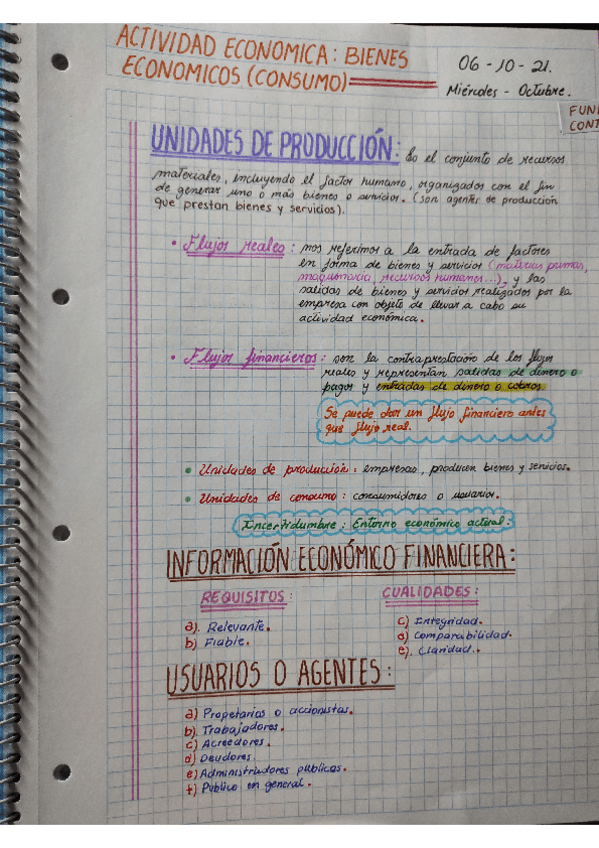 ACTIVIDAD ECONOMICA: BIENES
ECONOMICOS (CONSUMO)
06-10-21.
Miércoles - Octubre.
FUN
CONT
UNIDADES DE PRODUCCIÓN: Es el conjunto de recursos
materiales, incluyendo el factor humano, organizados con el fin
de generar uno o más bienes o servicios. (son agentes de producción
que prestan bienes y servicios).
• Flujos reales: nos referimos a la entrada de factores
en forma de bienes y servicios (materias primas,
maquinaria, recursos humanos...), y las
salidas de bienes y servicios realizados por la
empresa con objeto de llevar a cabo su
actividad económica.
• Flujos financieros: son la contraprestación de los flujos
reales y representan salidas de dinero o
pagos y entradas de dinero o cobros
Se puede dar un flujo financiero antes
que flujo real.
• Unidades de producción: empresas, producen bienes y servicios.
• Unidades de consumo: consumidores o usuarios.
Incertidumbre: Entorno económico actual.
INFORMACIÓN ECONÓMICO FINANCIERA:
REQUISITOS:
a). Relevante.
b). Fiable.
CUALIDADES:
c). Integridad.
d). Comparabilidad.
e). Claridad.
USUARIOS O AGENTES:
a) Propetarios o accionistas.
b). Trabajadores.
c) Acreedores.
d) Deudores.
e) Administradores públicas.
f) Público en general.